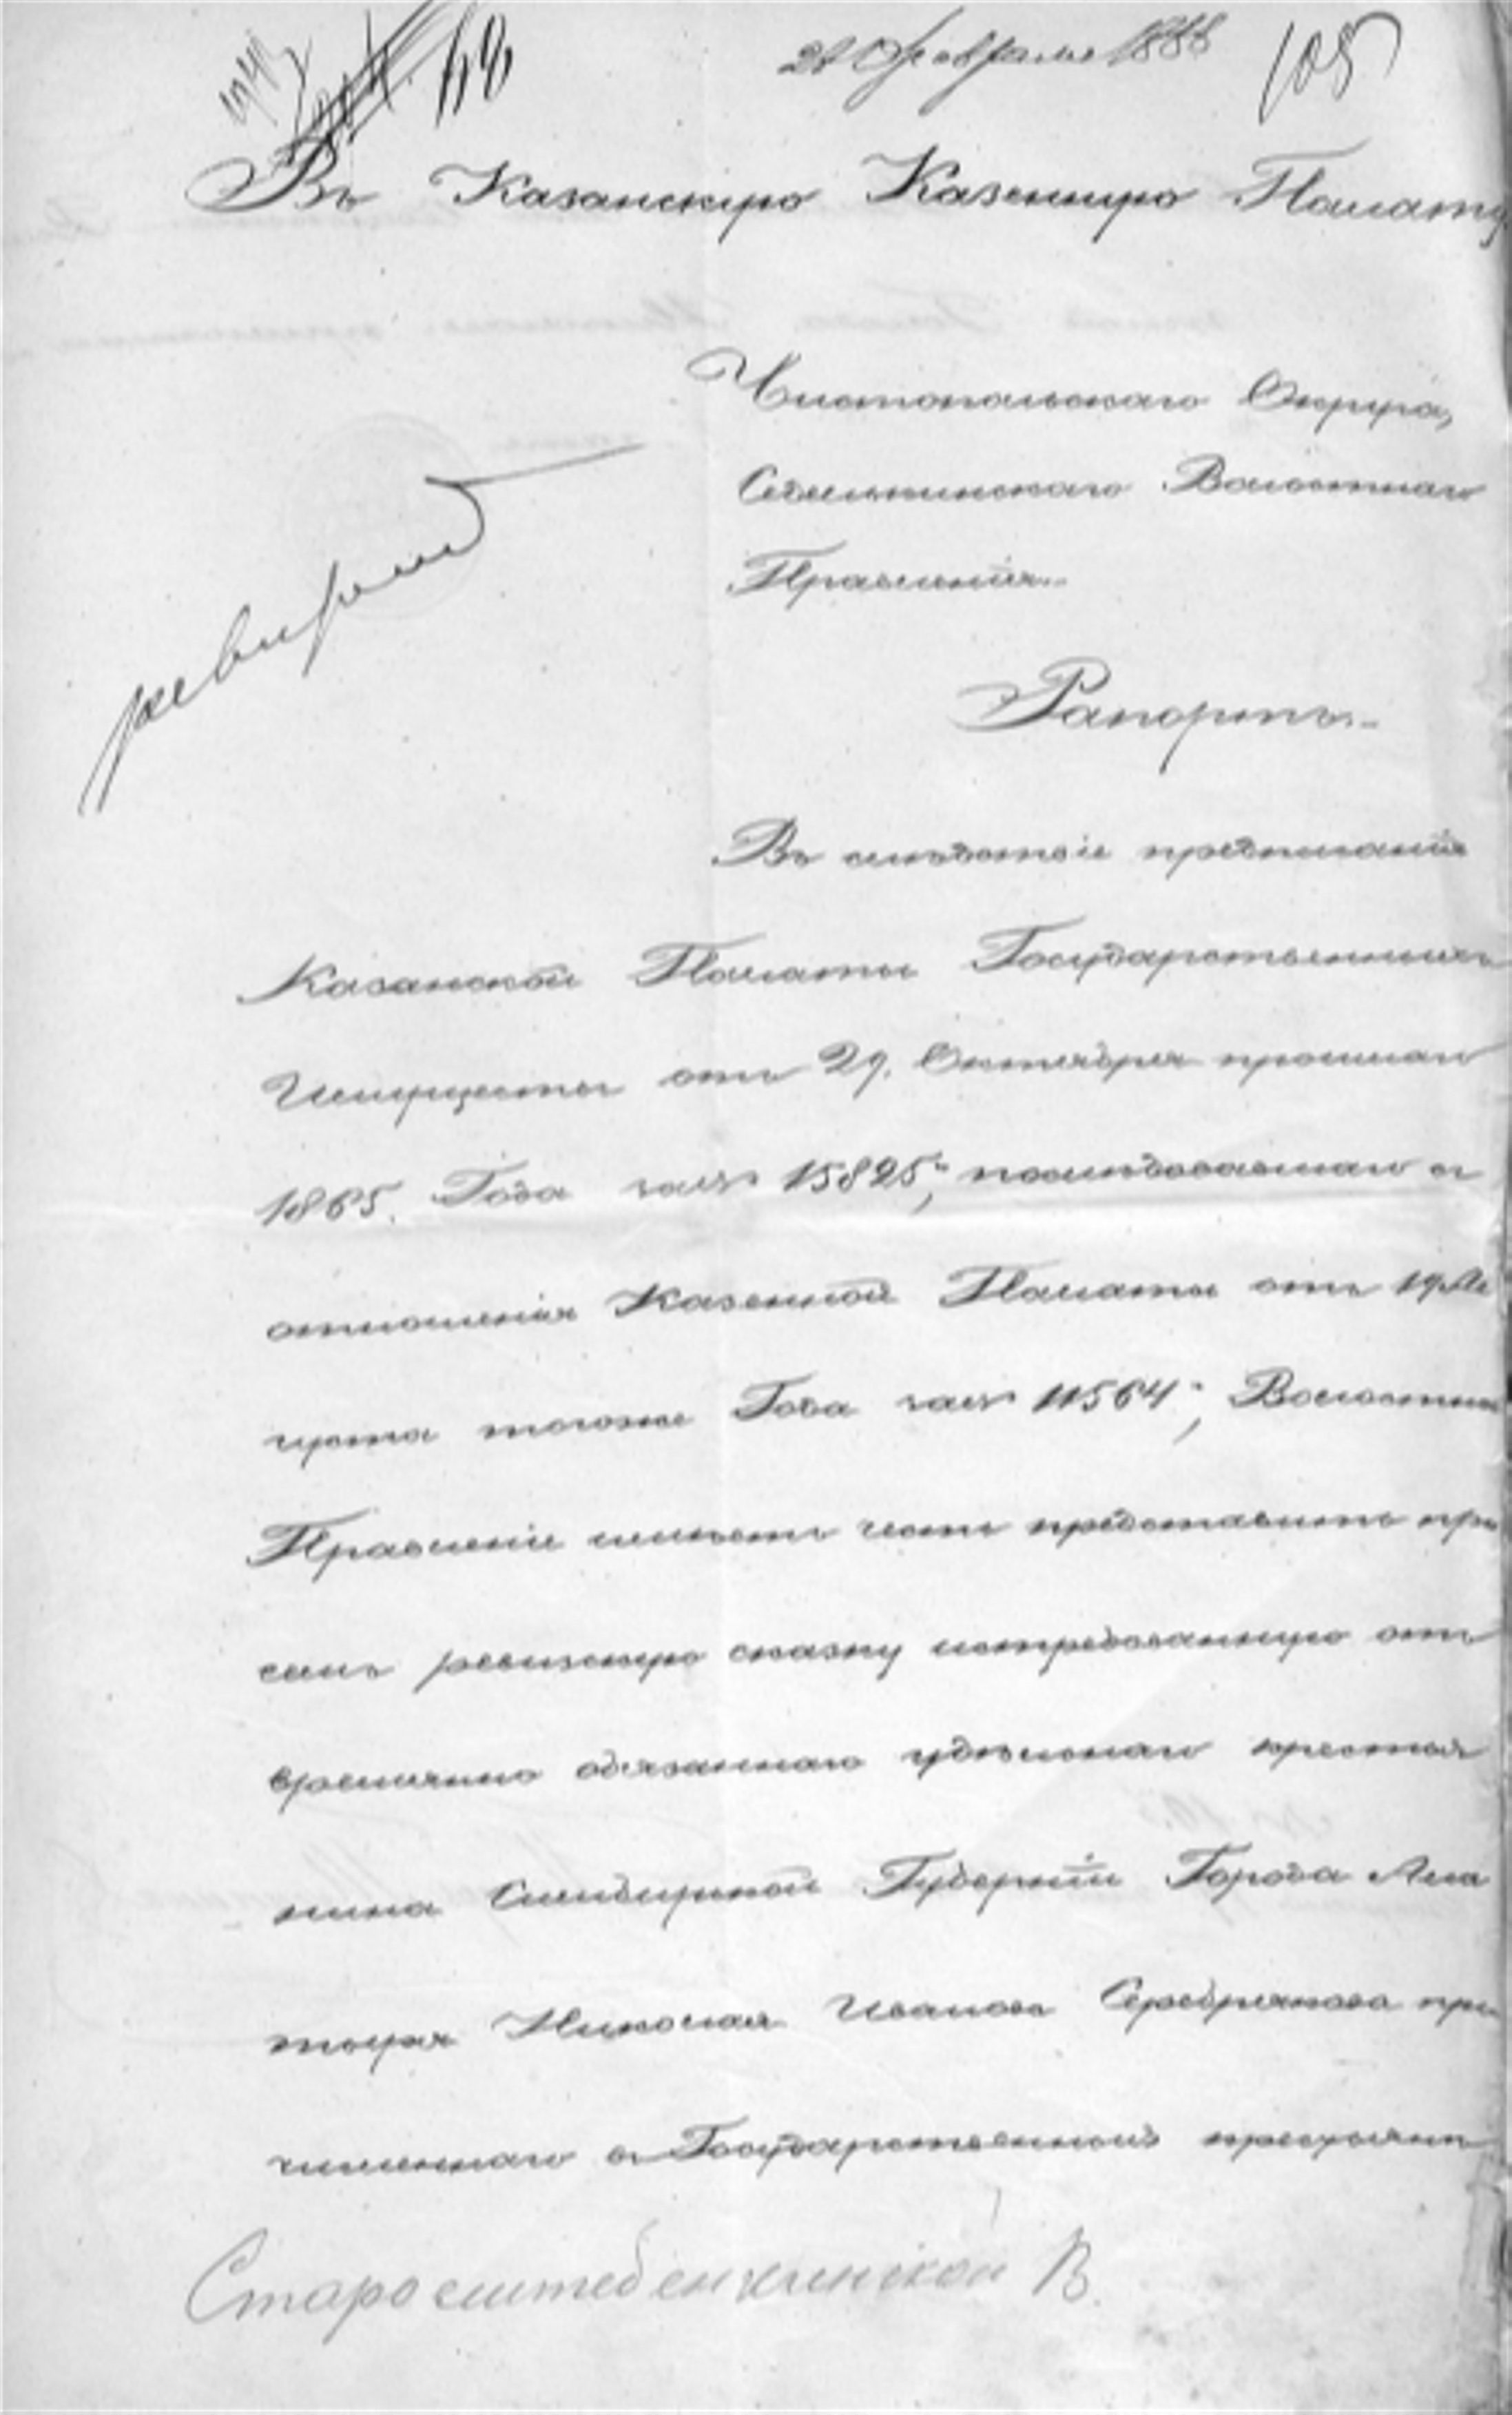 68
105
Въ Казанскую Казенную Палату
Чистопольскаго Округа,
Седелькинскаго Волостнаго
Правленія.
ревиз
Рапортъ.
Въ слѣдствіе предписанія
Казанской Палаты Государственныхъ
Имуществъ отъ 29. Октября прошлаго
1865. Года за № 15825, послѣдовавшаго съ
отношенія Казенной Палаты отъ 19 Ав
густа тогоже Года за № 11564, Волостное
Правленіе имѣетъ честь представить при
семъ ревизскую сказку истребованную отъ
временно обязаннаго удѣльнаго крестья
нина Симбирской Губерніи Города Ала
тыря Николая Иванова Серебрякова при
численнаго въ Государственные крестьяне
Старо В.